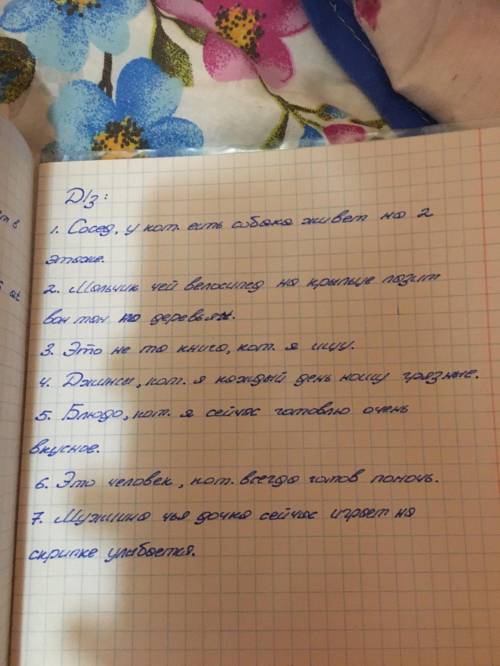 Д/з:
1. Сосед, у кот. есть собака живет на 2
этаже.
2. Мальчик чей велосипед на крыльце лазит
вон там по деревьям.
3. Это не та книга, кот. я ищу.
4. Джинсы, кот. я каждый день ношу грязные.
5. Блюдо, кот. я сейчас готовлю очень
вкусное.
6. Это человек, кот. всегда готов помочь.
7. Мужчина чья дочка сейчас играет на
скрипке улыбается.